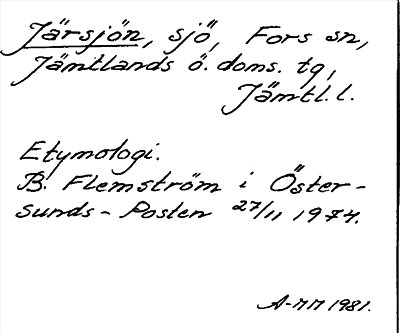 Järsjön, sjö, Fors sn,
Jämtlands ö. doms. tg,
Jämtl. l.
Etymologi.
B. Flemström i Öster-
sunds-Posten 27/11 1974.
A-MM 1981.